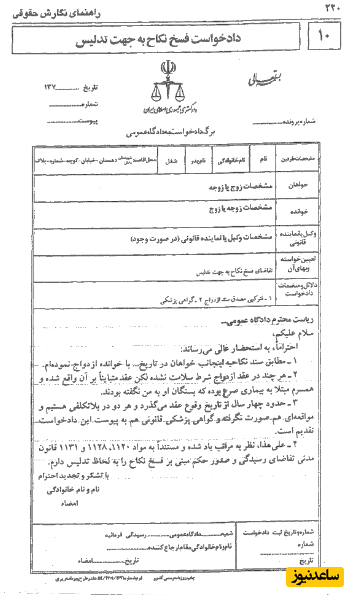 ۲۲۰
راهنمای نگارش حقوقی
۱۰
دادخواست فسخ نکاح به جهت تدلیس
بسمه تعالی
دادگستری جمهوری اسلامی ایران
تاریخ ۱۳۷
شماره
پیوست
شماره پرونده
برگ دادخواست به دادگاه عمومی
مشخصات طرفین نام نام خانوادگی نام پدر شغل محل اقامت شهرستان - دهستان - خیابان - کوچه - شماره - پلاک
خواهان مشخصات زوج یا زوجه
خوانده مشخصات زوجه یا زوج
وکیل یا نماینده قانونی مشخصات وکیل یا نماینده قانونی (در صورت وجود)
تعیین خواسته وبهای آن تقاضای فسخ نکاح به جهت تدلیس
دلائل و منضمات دادخواست ۱ - فتوکپی مصدق سند ازدواج ۲ - گواهی پزشکی
ریاست محترم دادگاه عمومی...
سلام علیکم،
احتراماً، به استحضار عالی می‌رساند:
۱ – مطابق سند نکاحیه اینجانب خواهان در تاریخ... با خوانده ازدواج نموده‌ام.
۲ – هر چند در عقد ازدواج شرط سلامت نشده لکن عقد متبایناً بر آن واقع شده و
همسرم مبتلا به بیماری صرع بوده که بستگان او به من نگفته بودند.
۳ – حدود چهار سال از تاریخ وقوع عقد می‌گذرد و هر دو در بلاتکلفی هستیم و
مواقعه‌ای هم صورت نگرفته و گواهی پزشکی قانونی هم به پیوست این دادخواست
تقدیم است.
۴ – علی‌هذا، نظر به مراتب یاد شده و مستنداً به مواد ۱۱۲۰، ۱۱۲۸ و ۱۱۳۱ قانون
مدنی تقاضای رسیدگی و صدور حکم مبنی بر فسخ نکاح را به لحاظ تدلیس دارم.
با تشکر و تجدید احترام
نام و نام خانوادگی
امضاء
شماره و تاریخ ثبت دادخواست
شماره
تاریخ
شعبه دادگاه عمومی رسیدگی فرمائید
نام و نام خانوادگی مقام ارجاع کننده
تاریخ امضاء
ساعدنیوز